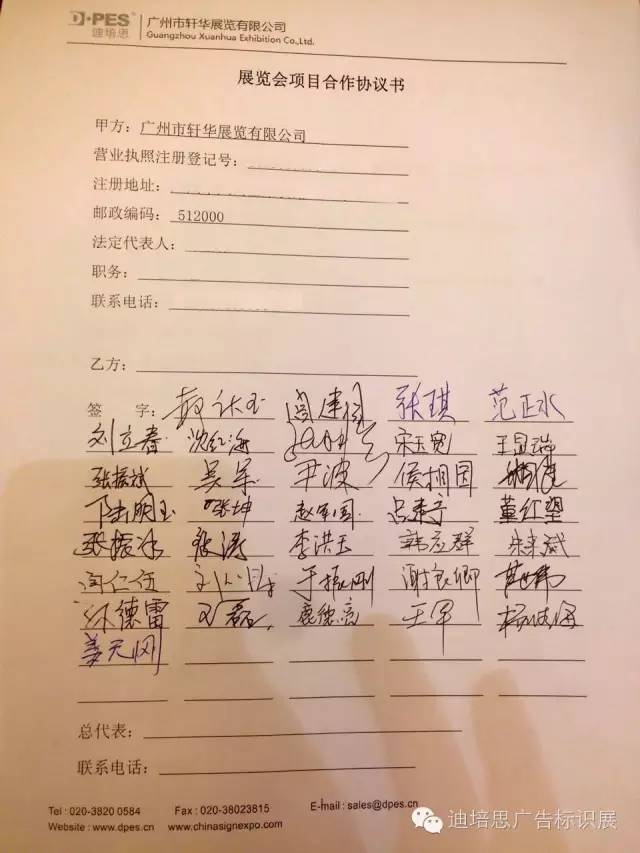 D·PES
迪培思
广州市轩华展览有限公司
Guangzhou Xuanhua Exhibition Co.,Ltd.
展览会项目合作协议书
甲方：广州市轩华展览有限公司
营业执照注册登记号：
注册地址：
邮政编码：512000
法定代表人：
职务：
联系电话：
乙方：
签 字： 张琪 范正水
刘立春 沈红海 宋玉宽 王显瑞
张振斌 吴军 尹波 侯相国
张坤 赵军国 董红望
张涛 李洪玉 韩彦群 朱来斌
闫仁伍 于振刚 谢良卿
孙德雷 王磊 鹿德亮 王军
姜天刚
总代表：
联系电话：
Tel : 020-3820 0584 Fax : 020-38023815 E-mail : sales@dpes.cn
Website : www.dpes.cn www.chinasignexpo.com
迪培思广告标识展